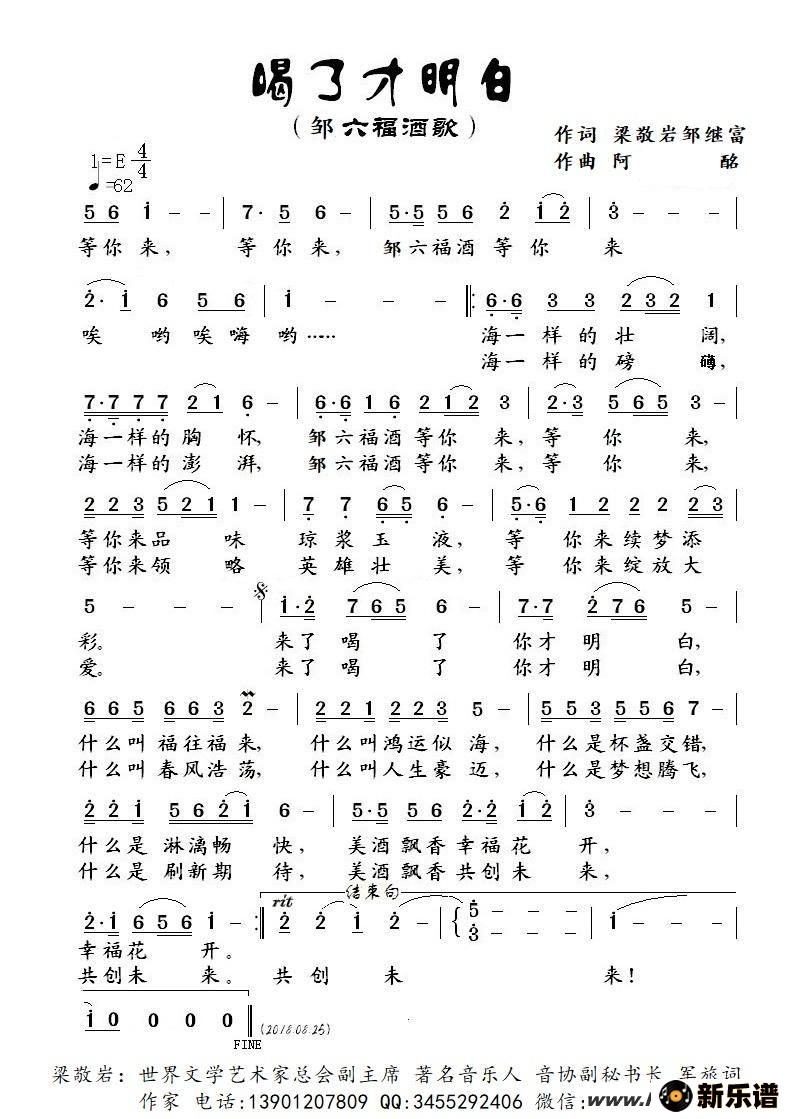 喝了才明白
（邹六福酒歌）
作词 梁敬岩邹继富
作曲 阿 酩
1=E 4/4
♩=62
5 6 i - - | 7· 5 6 - | 5·5 5 6 2 i 2 | 3 - - - |
等你来， 等你来， 邹六福酒等你 来
2· i 6 5 6 | i - - - ‖: 6·6 3 3 2 3 2 1 |
唉 哟唉嗨哟…… 海一样的壮 阔，
海一样的磅 礴，
7·7 7 7 2 1 6 - | 6·6 1 6 2 1 2 3 | 2·3 5 6 5 - |
海一样的胸 怀， 邹六福酒等你 来，等 你 来，
海一样的澎 湃， 邹六福酒等你 来，等 你 来，
2 2 3 5 2 1 1 - | 7 7 6 5 6 - | 5·6 1 2 2 2 2 3 |
等你来品 味 琼浆玉 液， 等 你来续梦添
等你来领 略 英雄壮 美， 等 你来绽放大
5 - - - | i·2 7 6 5 6 - | 7·7 2 7 6 5 - |
彩。 来了喝 了 你才明 白，
爱。 来了喝 了 你才明 白，
6 6 5 6 6 3 2 - | 2 2 1 2 2 3 5 - | 5 5 3 5 5 6 7 - |
什么叫福往福来， 什么叫鸿运似海， 什么是杯盏交错，
什么叫春风浩荡， 什么叫人生豪迈， 什么是梦想腾飞，
2 2 i 5 5 6 2 i 6 - | 5·5 5 6 2·2 i 2 | 3 - - - |
什么是淋漓畅 快， 美酒飘香幸福花 开，
什么是刷新期 待， 美酒飘香共创未 来，
rit 结束句
2·i 6 5 6 i - :‖ 2 2 i i 2 - | 5 3 - - - | i - - - |
幸福花 开。
共创未 来。 共 创 未 来！
i 0 0 0 0 ‖ (2018.08.25)
FINE
梁敬岩：世界文学艺术家总会副主席 著名音乐人 音协副秘书长 军旅词
作家 电话:13901207809 QQ:3455292406 微信:
www.
新乐谱